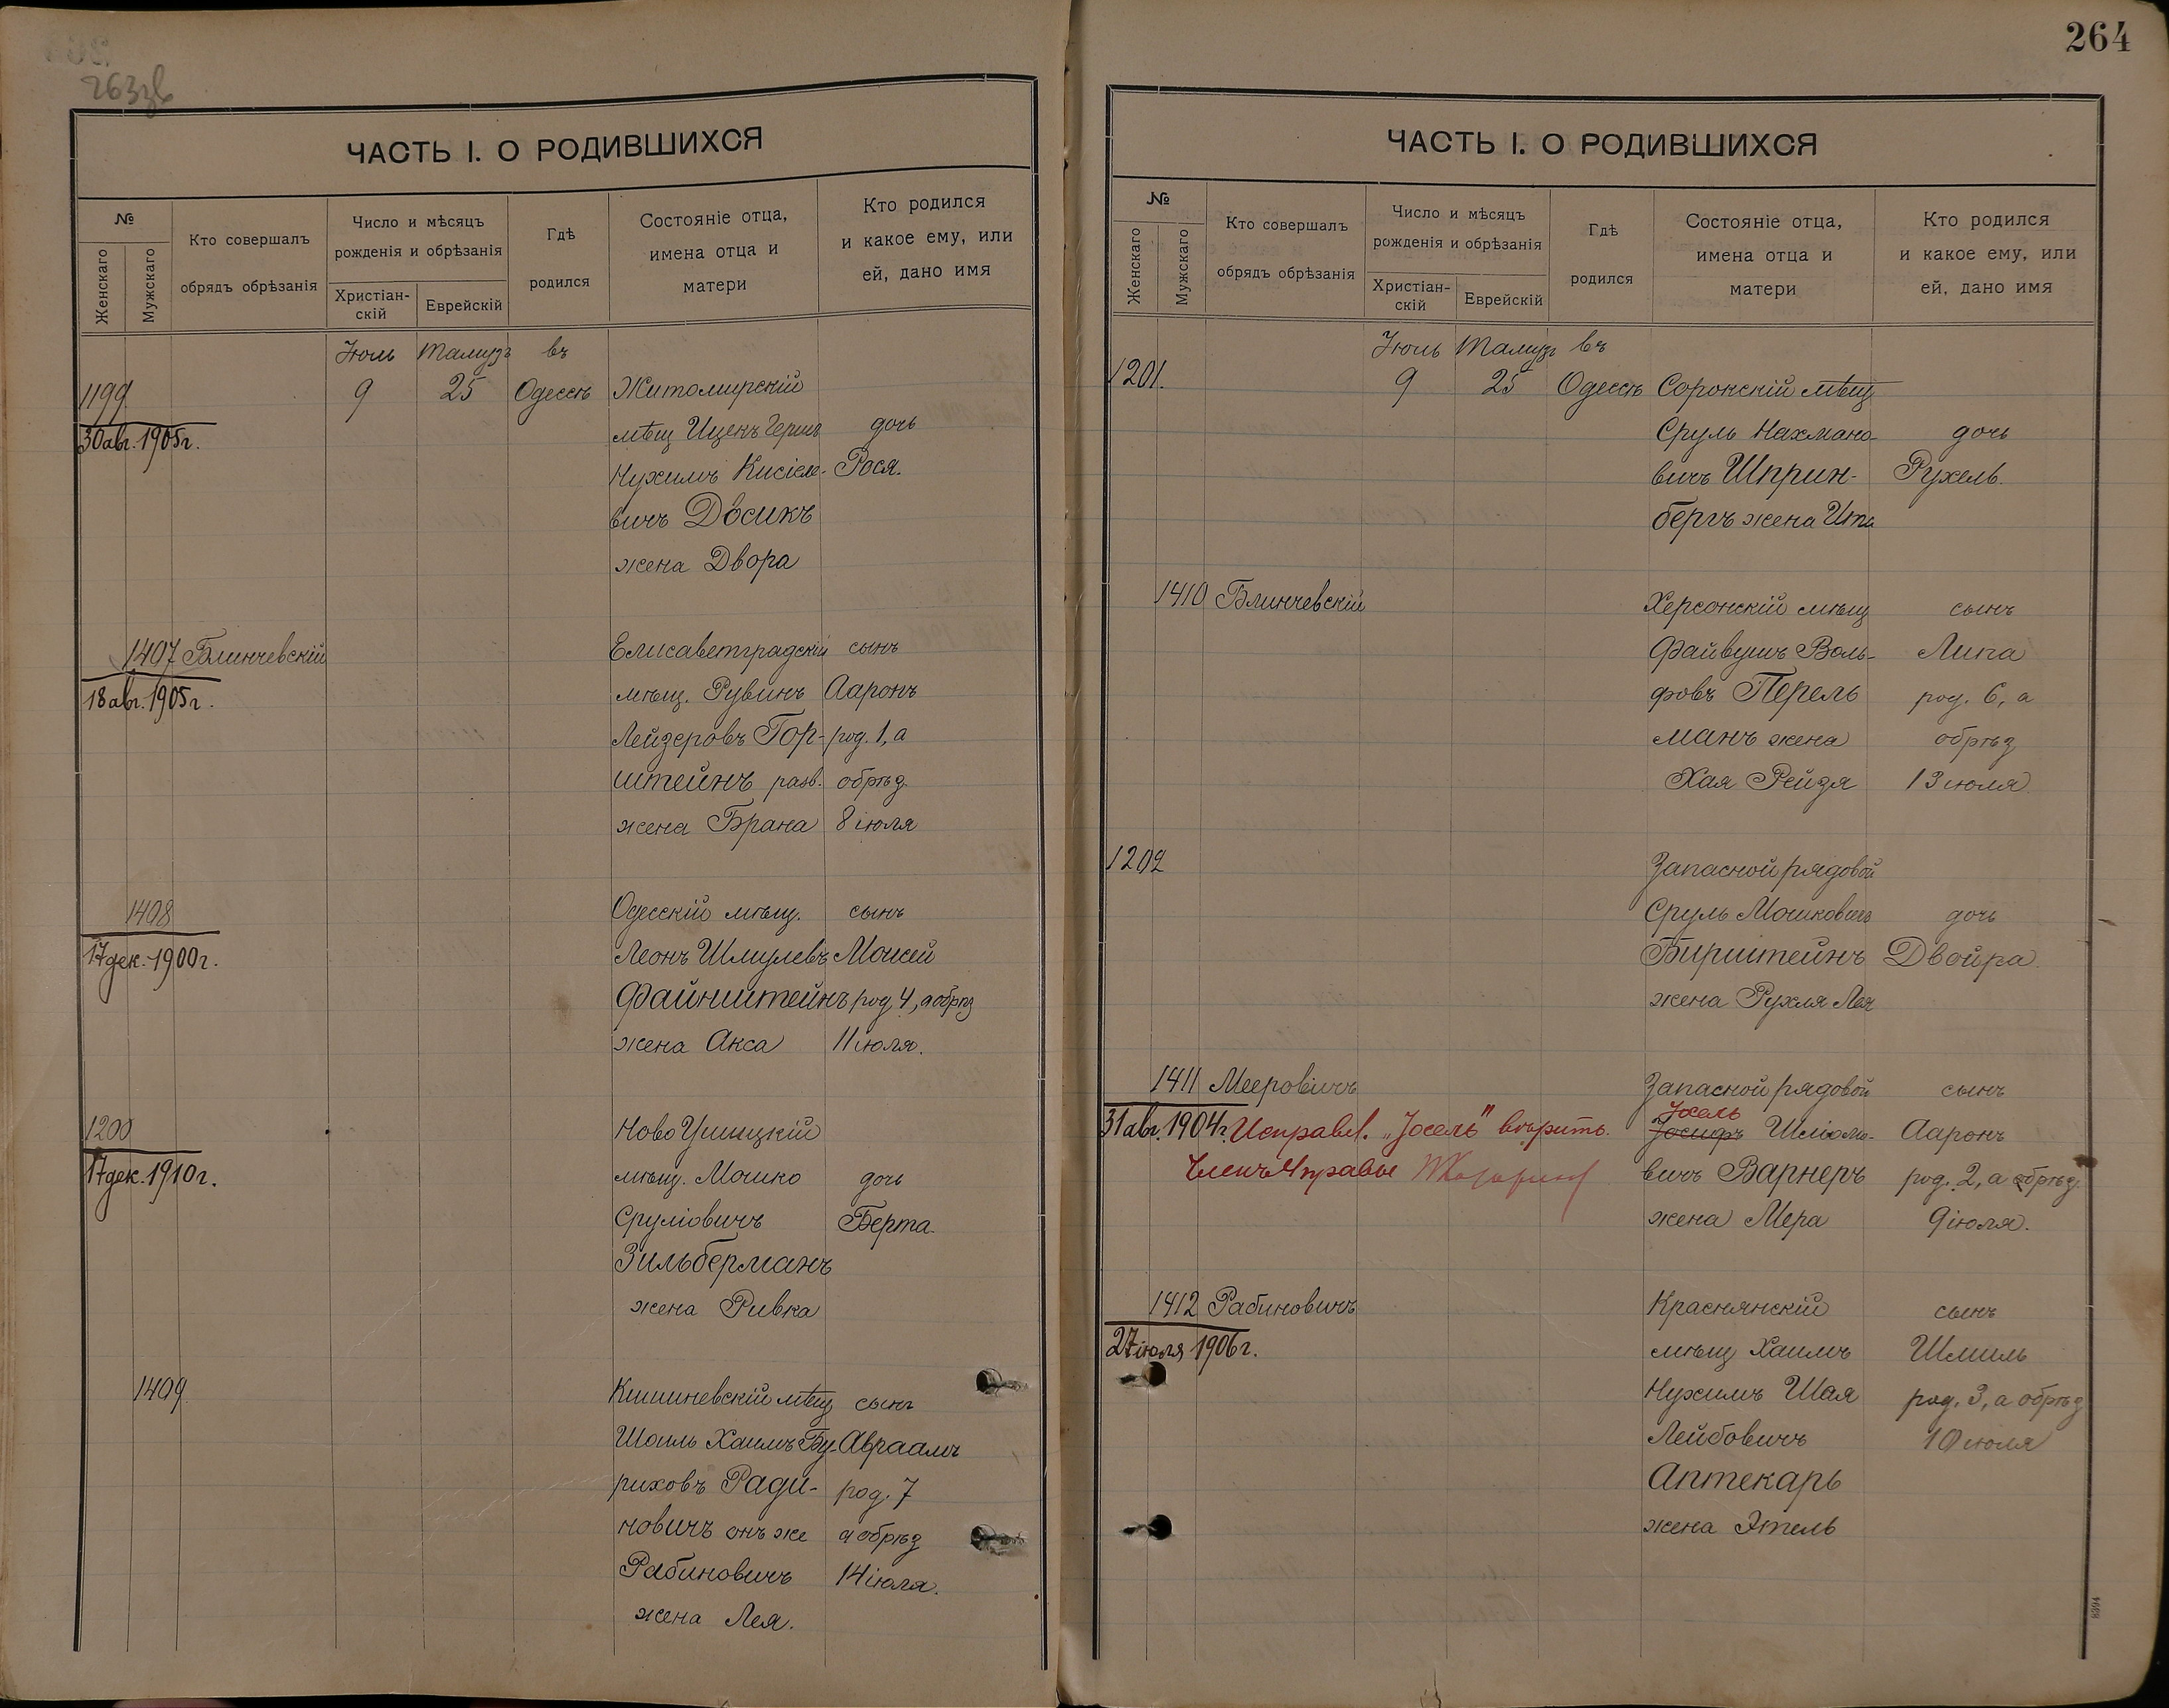 263зв
ЧАСТЬ I. О РОДИВШИХСЯ
№
Женскаго
Мужскаго
Кто совершалъ
обрядъ обрѣзанія
Число и мѣсяцъ
рожденія и обрѣзанія
Христіан-
скій
Еврейскій
Гдѣ
родился
Состояніе отца,
имена отца и
матери
Кто родился
и какое ему, или
ей, дано имя
Іюль Тамузъ въ
1199 9 25 Одессѣ Житомирскій
30 авг. 1905 г. мѣщ Ицекъ Гершъ дочь
Нухимъ Кисіеле- Рося.
вичъ Двосикъ
жена Двора
1407 Блинчевскій Елисаветградскій сынъ
18 авг. 1905 г. мѣщ. Рувинъ Ааронъ
Лейзеровъ Гор- род. 1, а
штейнъ разв. обрѣз.
жена Брана 8 іюля
1408 Одесскій мѣщ. сынъ
17 дек. 1900 г. Леонъ Шмулевъ Моисей
Файнштейнъ род. 4, а обрѣз
жена Акса 11 іюля.
1200 Ново Ушицкій
17 дек. 1910 г. мѣщ. Мошко дочь
Сруліовичъ Берта.
Зильберманъ
жена Ривка
1409 Кишиневскій мѣщ сынъ
Шоиль Хаимъ Бу Авраамъ
риховъ Ради- род. 7
новичъ онъ же а обрѣз
Рабиновичъ 14 іюля.
жена Лея.
264
ЧАСТЬ I. О РОДИВШИХСЯ
№
Женскаго
Мужскаго
Кто совершалъ
обрядъ обрѣзанія
Число и мѣсяцъ
рожденія и обрѣзанія
Христіан-
скій
Еврейскій
Гдѣ
родился
Состояніе отца,
имена отца и
матери
Кто родился
и какое ему, или
ей, дано имя
Іюль Тамузъ въ
1201. 9 25 Одессѣ Сорокскій мѣщ
Сруль Нахмано- дочь
вичъ Шприн- Рухель.
бергъ жена Ита
1410 Блинчевскій Херсонскій мѣщ сынъ
Файвушъ Воль- Липа
фовъ Перель род. 6, а
манъ жена обрѣз
Хая Рейзя 13 іюля
1202 Запасной рядовой
Сруль Мошковичъ дочь
Бирштейнъ Двойра.
жена Рухля Лея
1411 Мееровичъ Запасной рядовой сынъ
Іосель
31 авг. 1904 г. Исправл. „Іосель" вѣрить. Іосифъ Шліомо- Ааронъ
Членъ Управы вичъ Варнеръ род. 2, а обрѣз.
жена Мера 9 іюля.
1412 Рабиновичъ Краснянскій сынъ
27 іюля 1906 г. мѣщ Хаимъ Шмиль
Нухимъ Шая род. 3, а обрѣз
Лейбовичъ 10 іюля
Аптекарь
жена Этель
8394